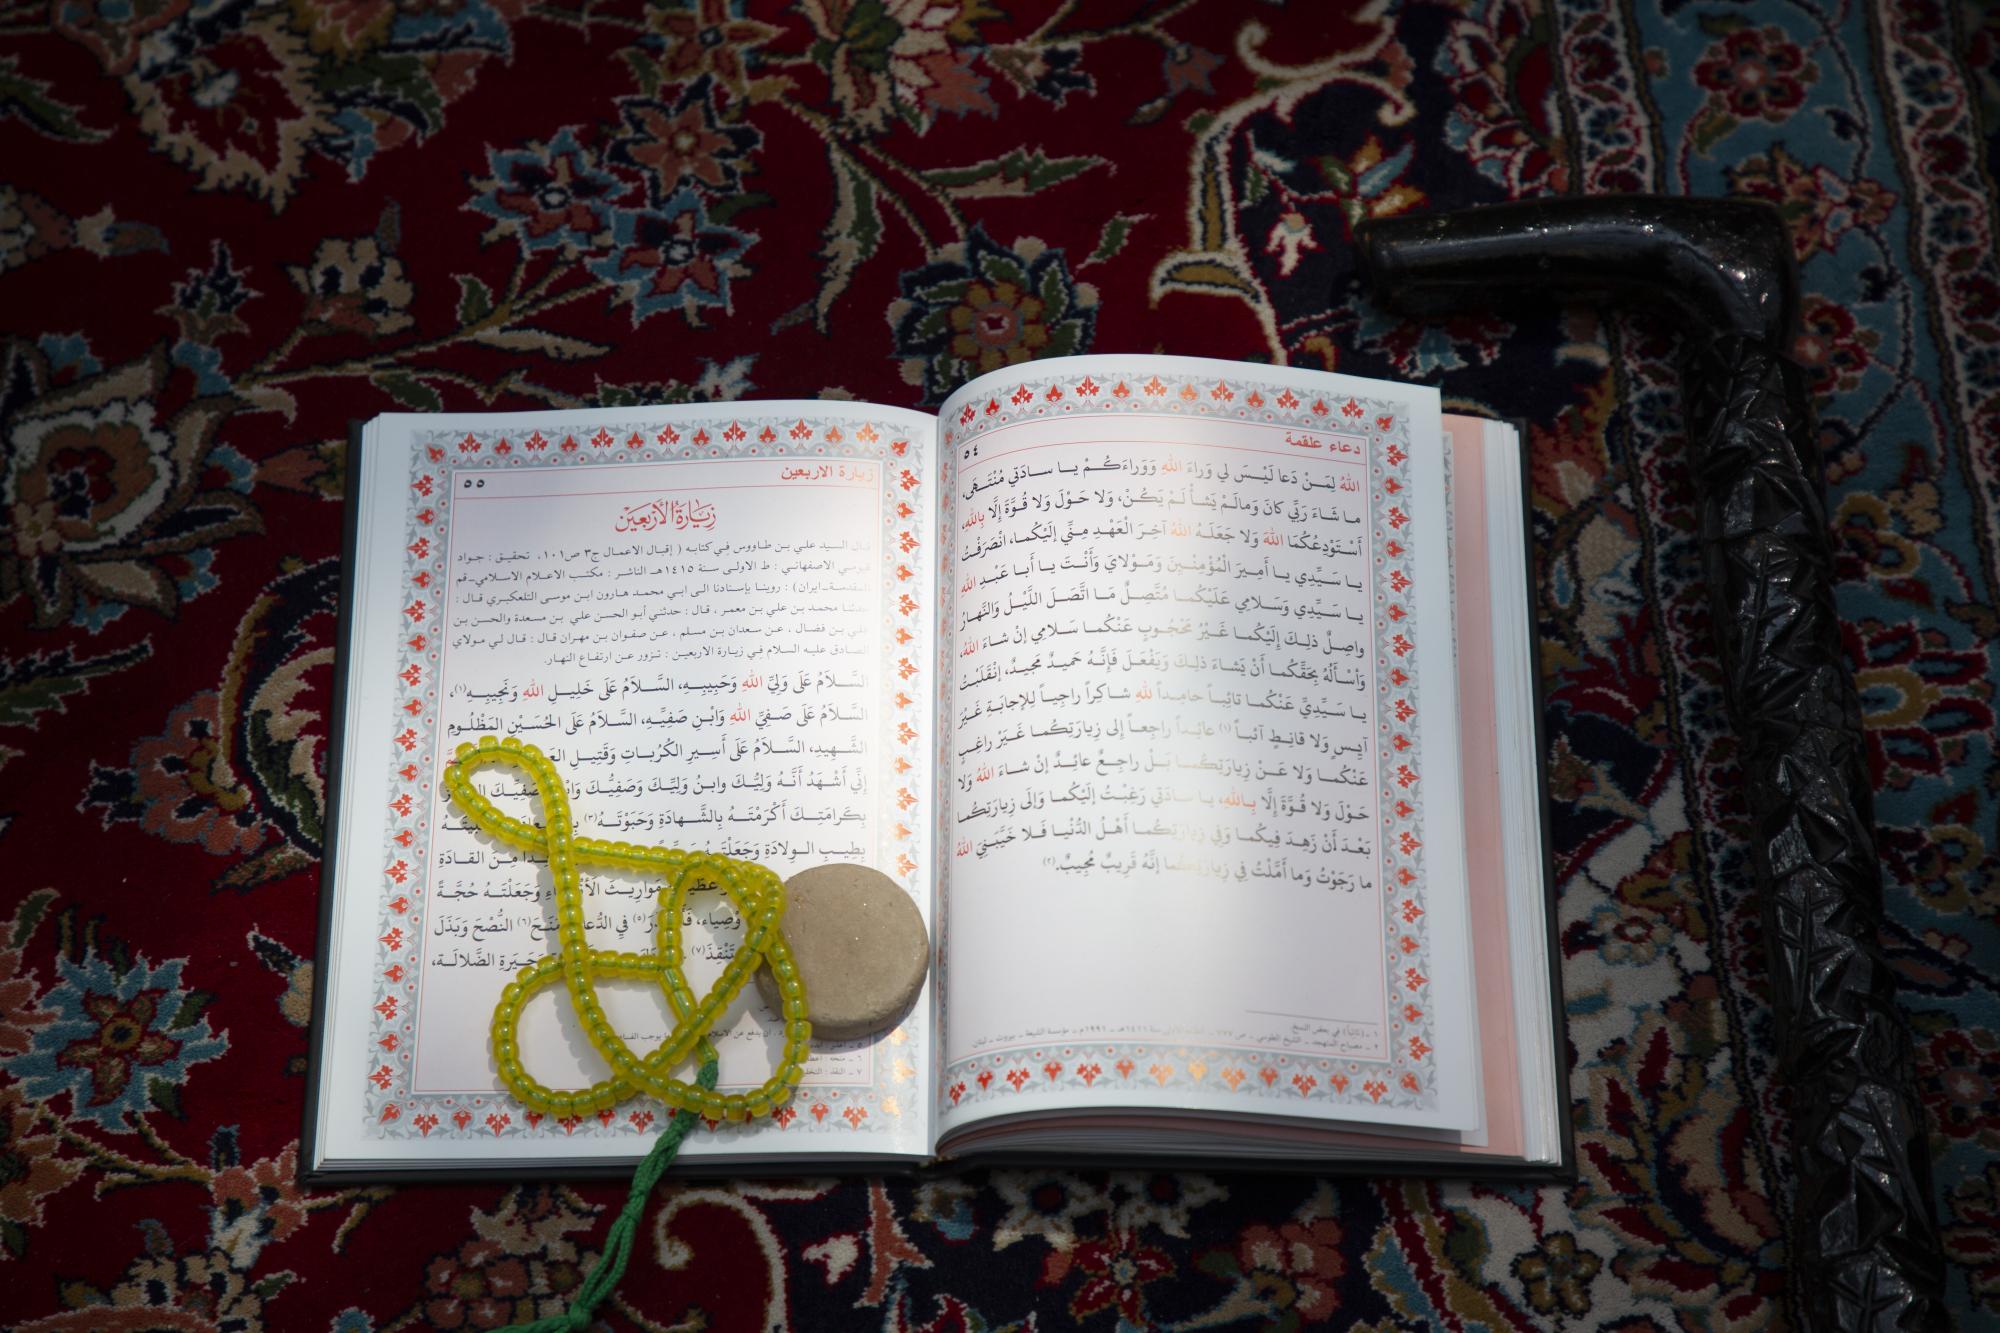 دعاء علقمة
٥٤
اللهُ لِمَنْ دَعا لَيْـسَ لي وَراءَ اللهِ وَوَراءَكُـمْ يـا سـادَتي مُنْتَـهَى،
ما شـاءَ رَبِّي كانَ وَمالَـمْ يَشـأْ لَـمْ يَكُـنْ، وَلا حَـوْلَ وَلا قُـوَّةَ إلَّا بِاللهِ،
أسْتَوْدِعُكُمَا اللهَ وَلا جَعَلَـهُ اللهُ آخِـرَ الْعَهْـدِ مِنِّي إلَيْكُمـا، انْصَرَفْـتُ
يـا سَـيِّدِي يـا أمِـيرَ الْمُؤْمِنيـنَ وَمَـوْلايَ وَأَنْـتَ يـا أَبـا عَبْـدِ اللهِ
يـا سَـيِّدِي وَسَـلامِي عَلَيْكُمـا مُتَّصِـلٌ مَـا اتَّصَـلَ اللَّيْـلُ وَالنَّهـارُ
واصِـلٌ ذلِـكَ إلَيْكُمـا غَيْـرُ مَحْجُـوبٍ عَنْكُمـا سَـلامِي إنْ شـاءَ اللهُ،
وَأسْـأَلُهُ بِحَقِّكُمـا أَنْ يَشـاءَ ذلِـكَ وَيَفْعَـلَ فَإنَّـهُ حَميـدٌ مَجيـدٌ، إنْقَلَبْـتُ
يـا سَـيِّدِيَّ عَنْكُمـا تائِبـاً حامِـداً للهِ شـاكِراً راجِيـاً لِلإجابَـةِ غَـيْرَ
آيِـسٍ وَلا قانِـطٍ آئبـاً (١) عائِـداً راجِعـاً إلى زِيارَتِكُمـا غَـيْرَ راغِـبٍ
عَنْكُمـا وَلا عَـنْ زِيارَتِكُمـا بَـلْ راجِـعٌ عائِـدٌ إنْ شـاءَ اللهُ وَلا
حَوْلَ وَلا قُـوَّةَ إلَّا بِـاللهِ، يـا سـادَتي رَغِبْـتُ إلَيْكُمـا وَإلى زِيارَتِكُمـا
بَعْـدَ أَنْ زَهِـدَ فِيكُمـا وَفِي زِيارَتِكُمـا أَهْـلُ الدُّنْيـا فَـلا خَيَّبَنِيَ اللهُ
ما رَجَوْتُ وَما أَمَّلْتُ فِي زِيارَتِكُما إنَّهُ قَرِيبٌ مُجِيبٌ.(٢)
١ ـ (تائباً) في بعض النسخ.
٢ ـ مصباح المتهجد ـ الشيخ الطوسي ـ ص ٧٧٧ ـ سنة ١٤١١هـ ـ ١٩٩١م ـ مؤسسة الشيعة ـ بيروت ـ لبنان.
زيارة الاربعين
٥٥
زِيَارَةُ الأَرْبَعِيْن
قـال السـيد علـي بـن طـاووس فـي كتابـه ( إقبـال الاعمـال ج٣ ص١٠١، تحقيـق : جـواد
قيومـي الاصفهانـي : ط الاولـى سـنة ١٤١٥هـ الناشـر : مكتـب الاعـلام الاسـلامي_قم
المقدسـة_ايران) : روينـا بإسـنادنا الـى ابـي محمـد هـارون ابـن موسـى التلعكبـري قـال :
حدثنـا محمـد بـن علـي بـن معمـر، قـال : حدثنـي أبـو الحسـن علـي بـن مسـعدة والحسـن بـن
علـي بـن فضـال ، عـن سـعدان بـن مسـلم ، عـن صفـوان بـن مهـران قـال : قـال لـي مـولاي
الصـادق عليـه السـلام فـي زيـارة الاربعيـن : تـزور عـن ارتفـاع النهـار.
السَّـلامُ عَلَى وَلِيِّ اللهِ وَحَبِيبِـهِ، السَّـلامُ عَلَى خَلِيـلِ اللهِ وَنَجِيبِـهِ(١)،
السَّـلامُ عَلَى صَـفِيِّ اللهِ وَابْنِ صَفِيِّـهِ، السَّـلامُ عَلَى الحُسَـيْنِ المَظْلُـومِ
الشَّـهِيدِ، السَّـلاَمُ عَلَى أَسِـيرِ الكُرُبـاتِ وَقَتِيـلِ
إنِّي أَشْـهَدُ أَنَّـهُ وَلِيُّـكَ وابنُ وَلِيِّـكَ وَصَفِيُّـكَ وَابْنُ صَفِيِّـكَ
بِكَرامَتِـكَ أَكْرَمْتَـهُ بِالشَّـهادَةِ وَحَبَوْتَـهُ(٣)
بِطِيـبِ الـوِلادَةِ وَجَعَلْتَـهُ مِـنَ القـادَةِ
مَوارِيـثَ وَجَعَلْتَـهُ حُجَّـةً
فِي الدُّعاءِ وَمَنَـحَ(٦) النُّصْحَ وَبَذَلَ
وَحَيْرَةِ الضَّلالَـةِ،
٦ ـ منحه :